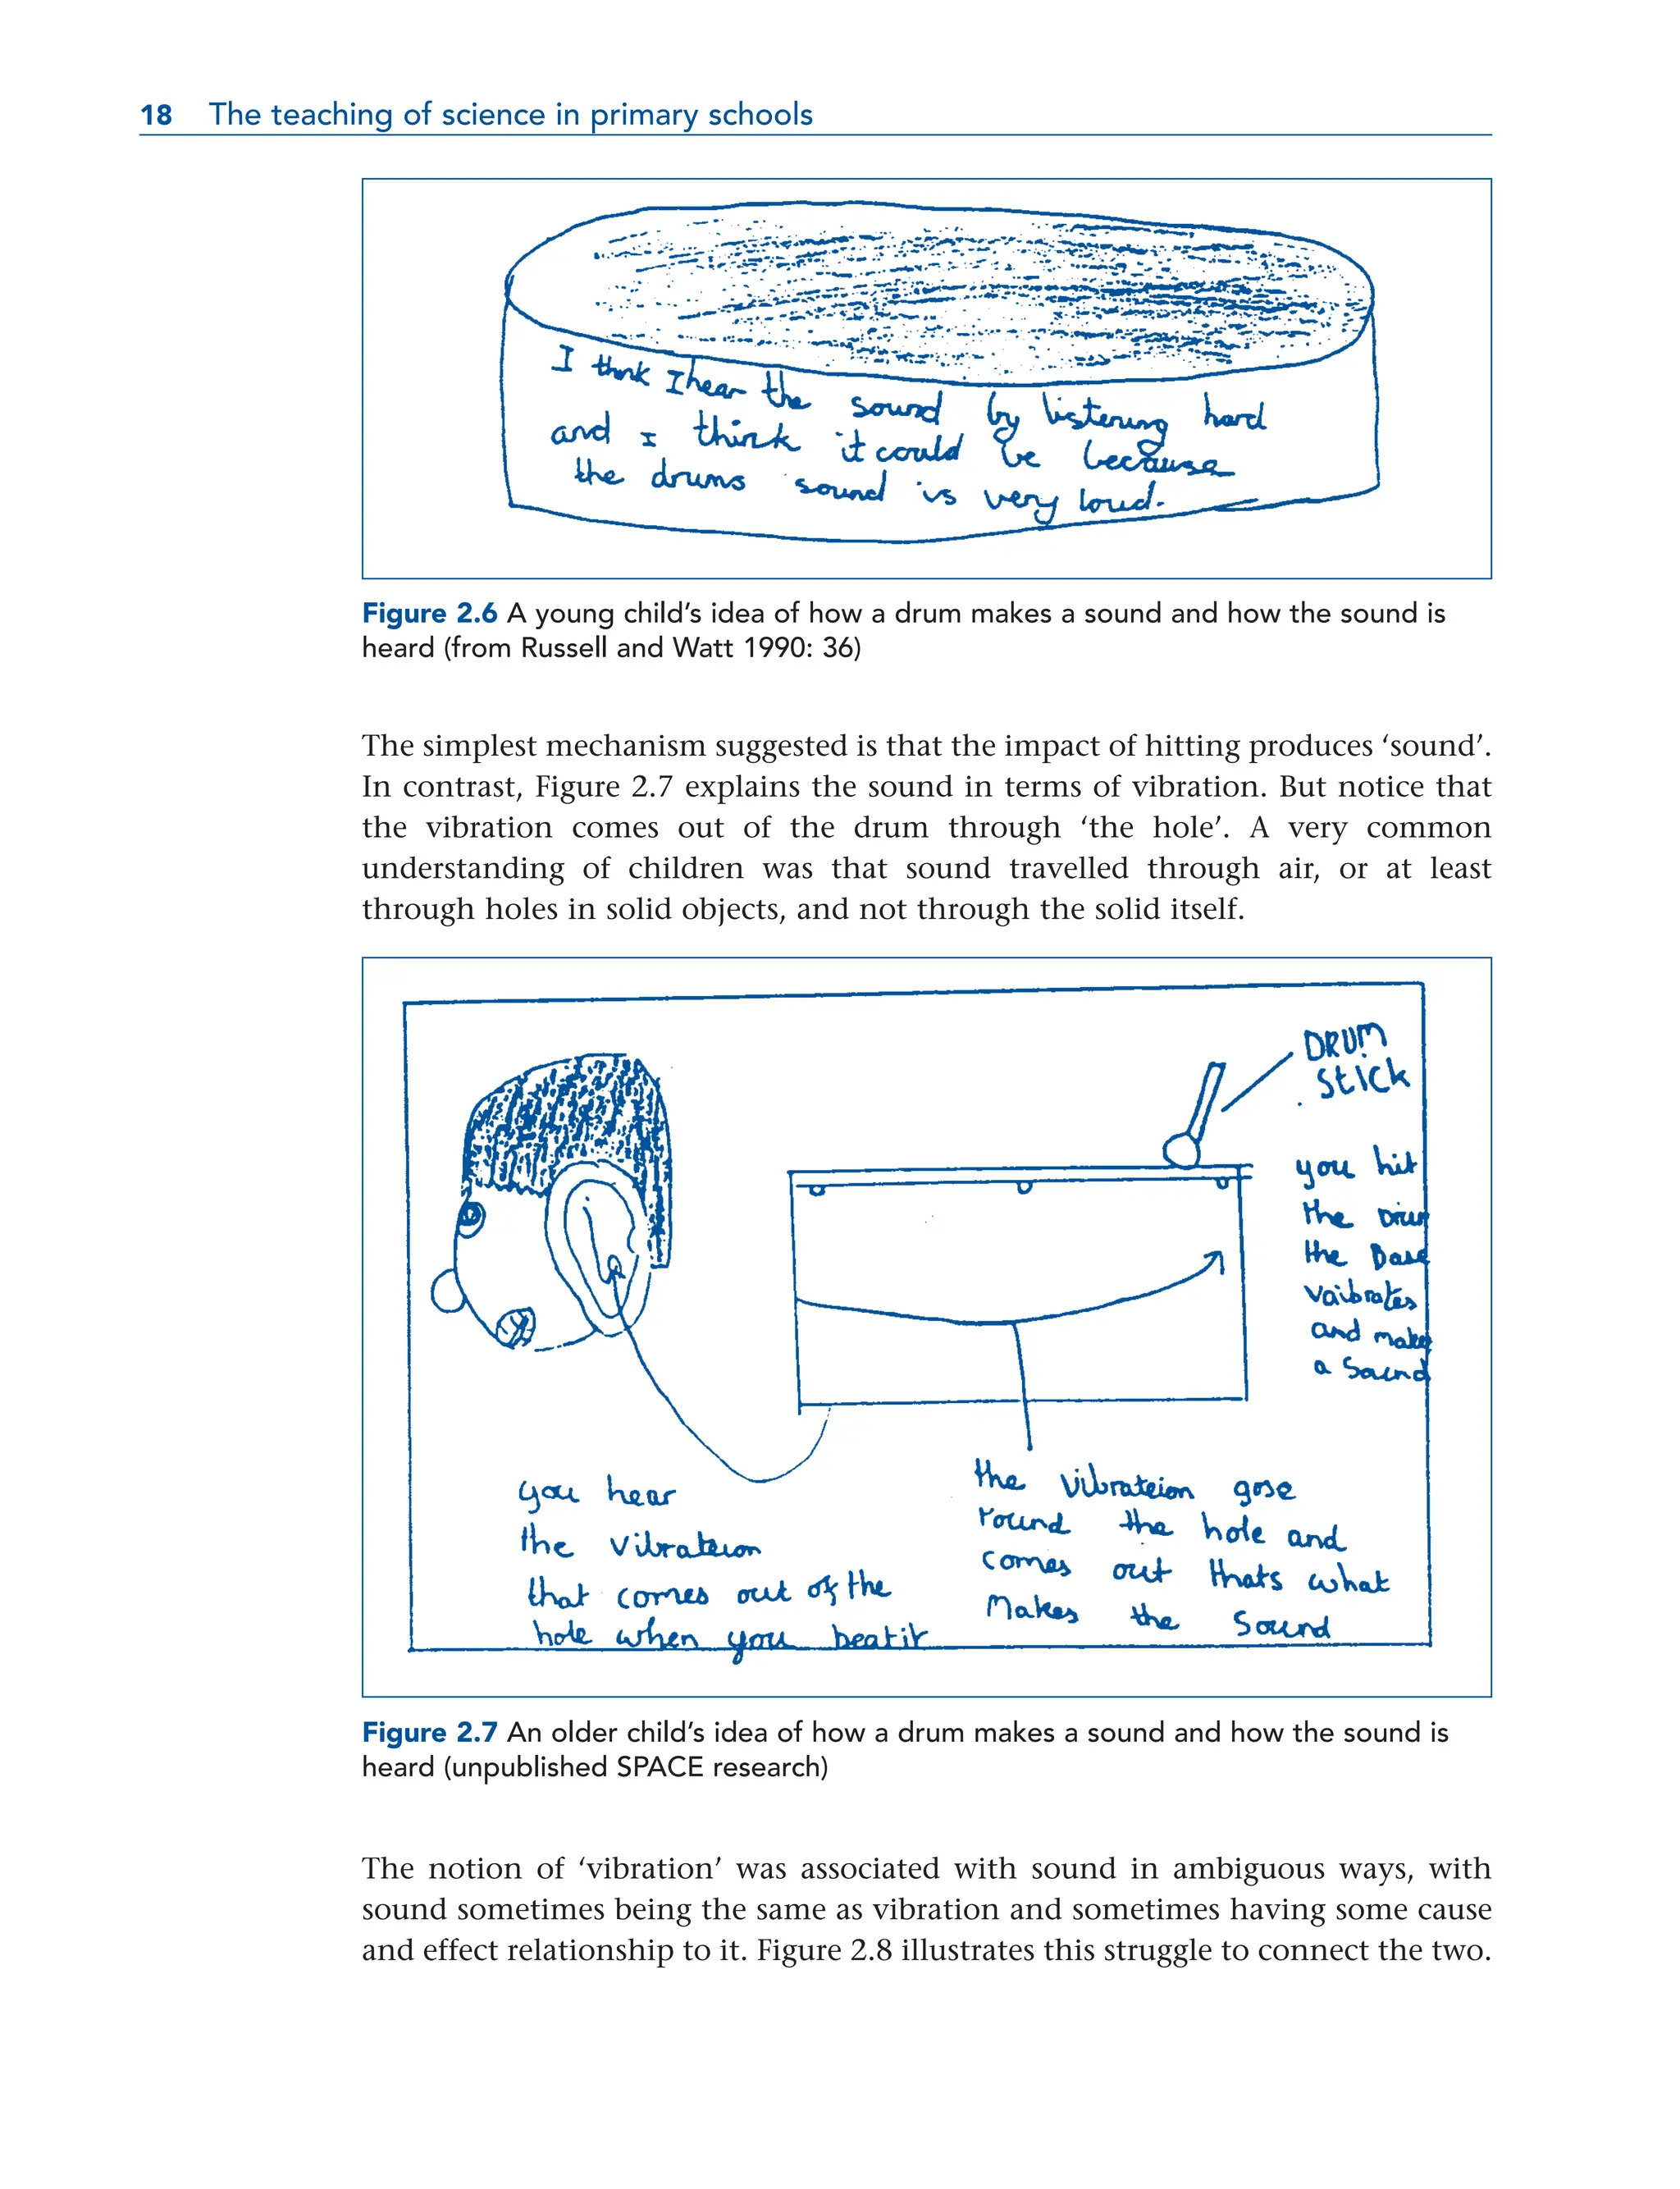 18 The teaching of science in primary schools
I think I hear the sound by listening hard
and I think it could be because
the drums sound is very loud.
Figure 2.6 A young child’s idea of how a drum makes a sound and how the sound is
heard (from Russell and Watt 1990: 36)
The simplest mechanism suggested is that the impact of hitting produces ‘sound’.
In contrast, Figure 2.7 explains the sound in terms of vibration. But notice that
the vibration comes out of the drum through ‘the hole’. A very common
understanding of children was that sound travelled through air, or at least
through holes in solid objects, and not through the solid itself.
DRUM
Stick
you hit
the Drum
the Base
vaibrates
and makes
a Sound
you hear
the vibrateion
that comes out of the
hole when you beat it
the vibrateion gose
round the hole and
comes out thats what
Makes the Sound
Figure 2.7 An older child’s idea of how a drum makes a sound and how the sound is
heard (unpublished SPACE research)
The notion of ‘vibration’ was associated with sound in ambiguous ways, with
sound sometimes being the same as vibration and sometimes having some cause
and effect relationship to it. Figure 2.8 illustrates this struggle to connect the two.